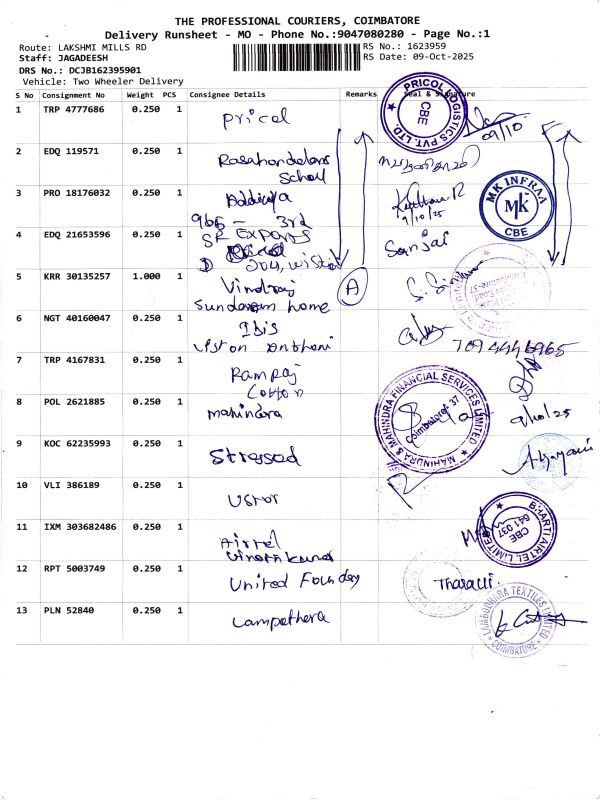 THE PROFESSIONAL COURIERS, COIMBATORE
Delivery Runsheet - MO - Phone No.:9047080280 - Page No.:1
Route: LAKSHMI MILLS RD
RS No.: 1623959
Staff: JAGADEESH
RS Date: 09-Oct-2025
DRS No.: DCJB162395901
Vehicle: Two Wheeler Delivery
S No Consignment No Weight PCS Consignee Details Remarks Seal & Signature
1 TRP 4777686 0.250 1 Pricol
PRICOL LOGISTICS PVT. LTD. CBE
09/10
2 EDQ 119571 0.250 1
School
3 PRO 18176032 0.250 1 Addidya
9/10/25
MK INFRAA MK CBE
966 - 3rd
4 EDQ 21653596 0.250 1 SP EXPORTS
Sanjai
D 204, wiston
5 KRR 30135257 1.000 1 Vindraj
A
Sundaram home
6 NGT 40160047 0.250 1 Ibis
7094446965
7 TRP 4167831 0.250 1 Ramraj
Cotton
8 POL 2621885 0.250 1 mahindra
MAHINDRA & MAHINDRA FINANCIAL SERVICES LIMITED Coimbatore 37
9/10/25
9 KOC 62235993 0.250 1 Stressed
10 VLI 386189 0.250 1
11 IXM 303682486 0.250 1 Airtel
BHARTI AIRTEL LIMITED CBE 641 037
12 RPT 5003749 0.250 1 United Founday
13 PLN 52840 0.250 1 Lampothera
TEXTILES LIMITED COIMBATORE